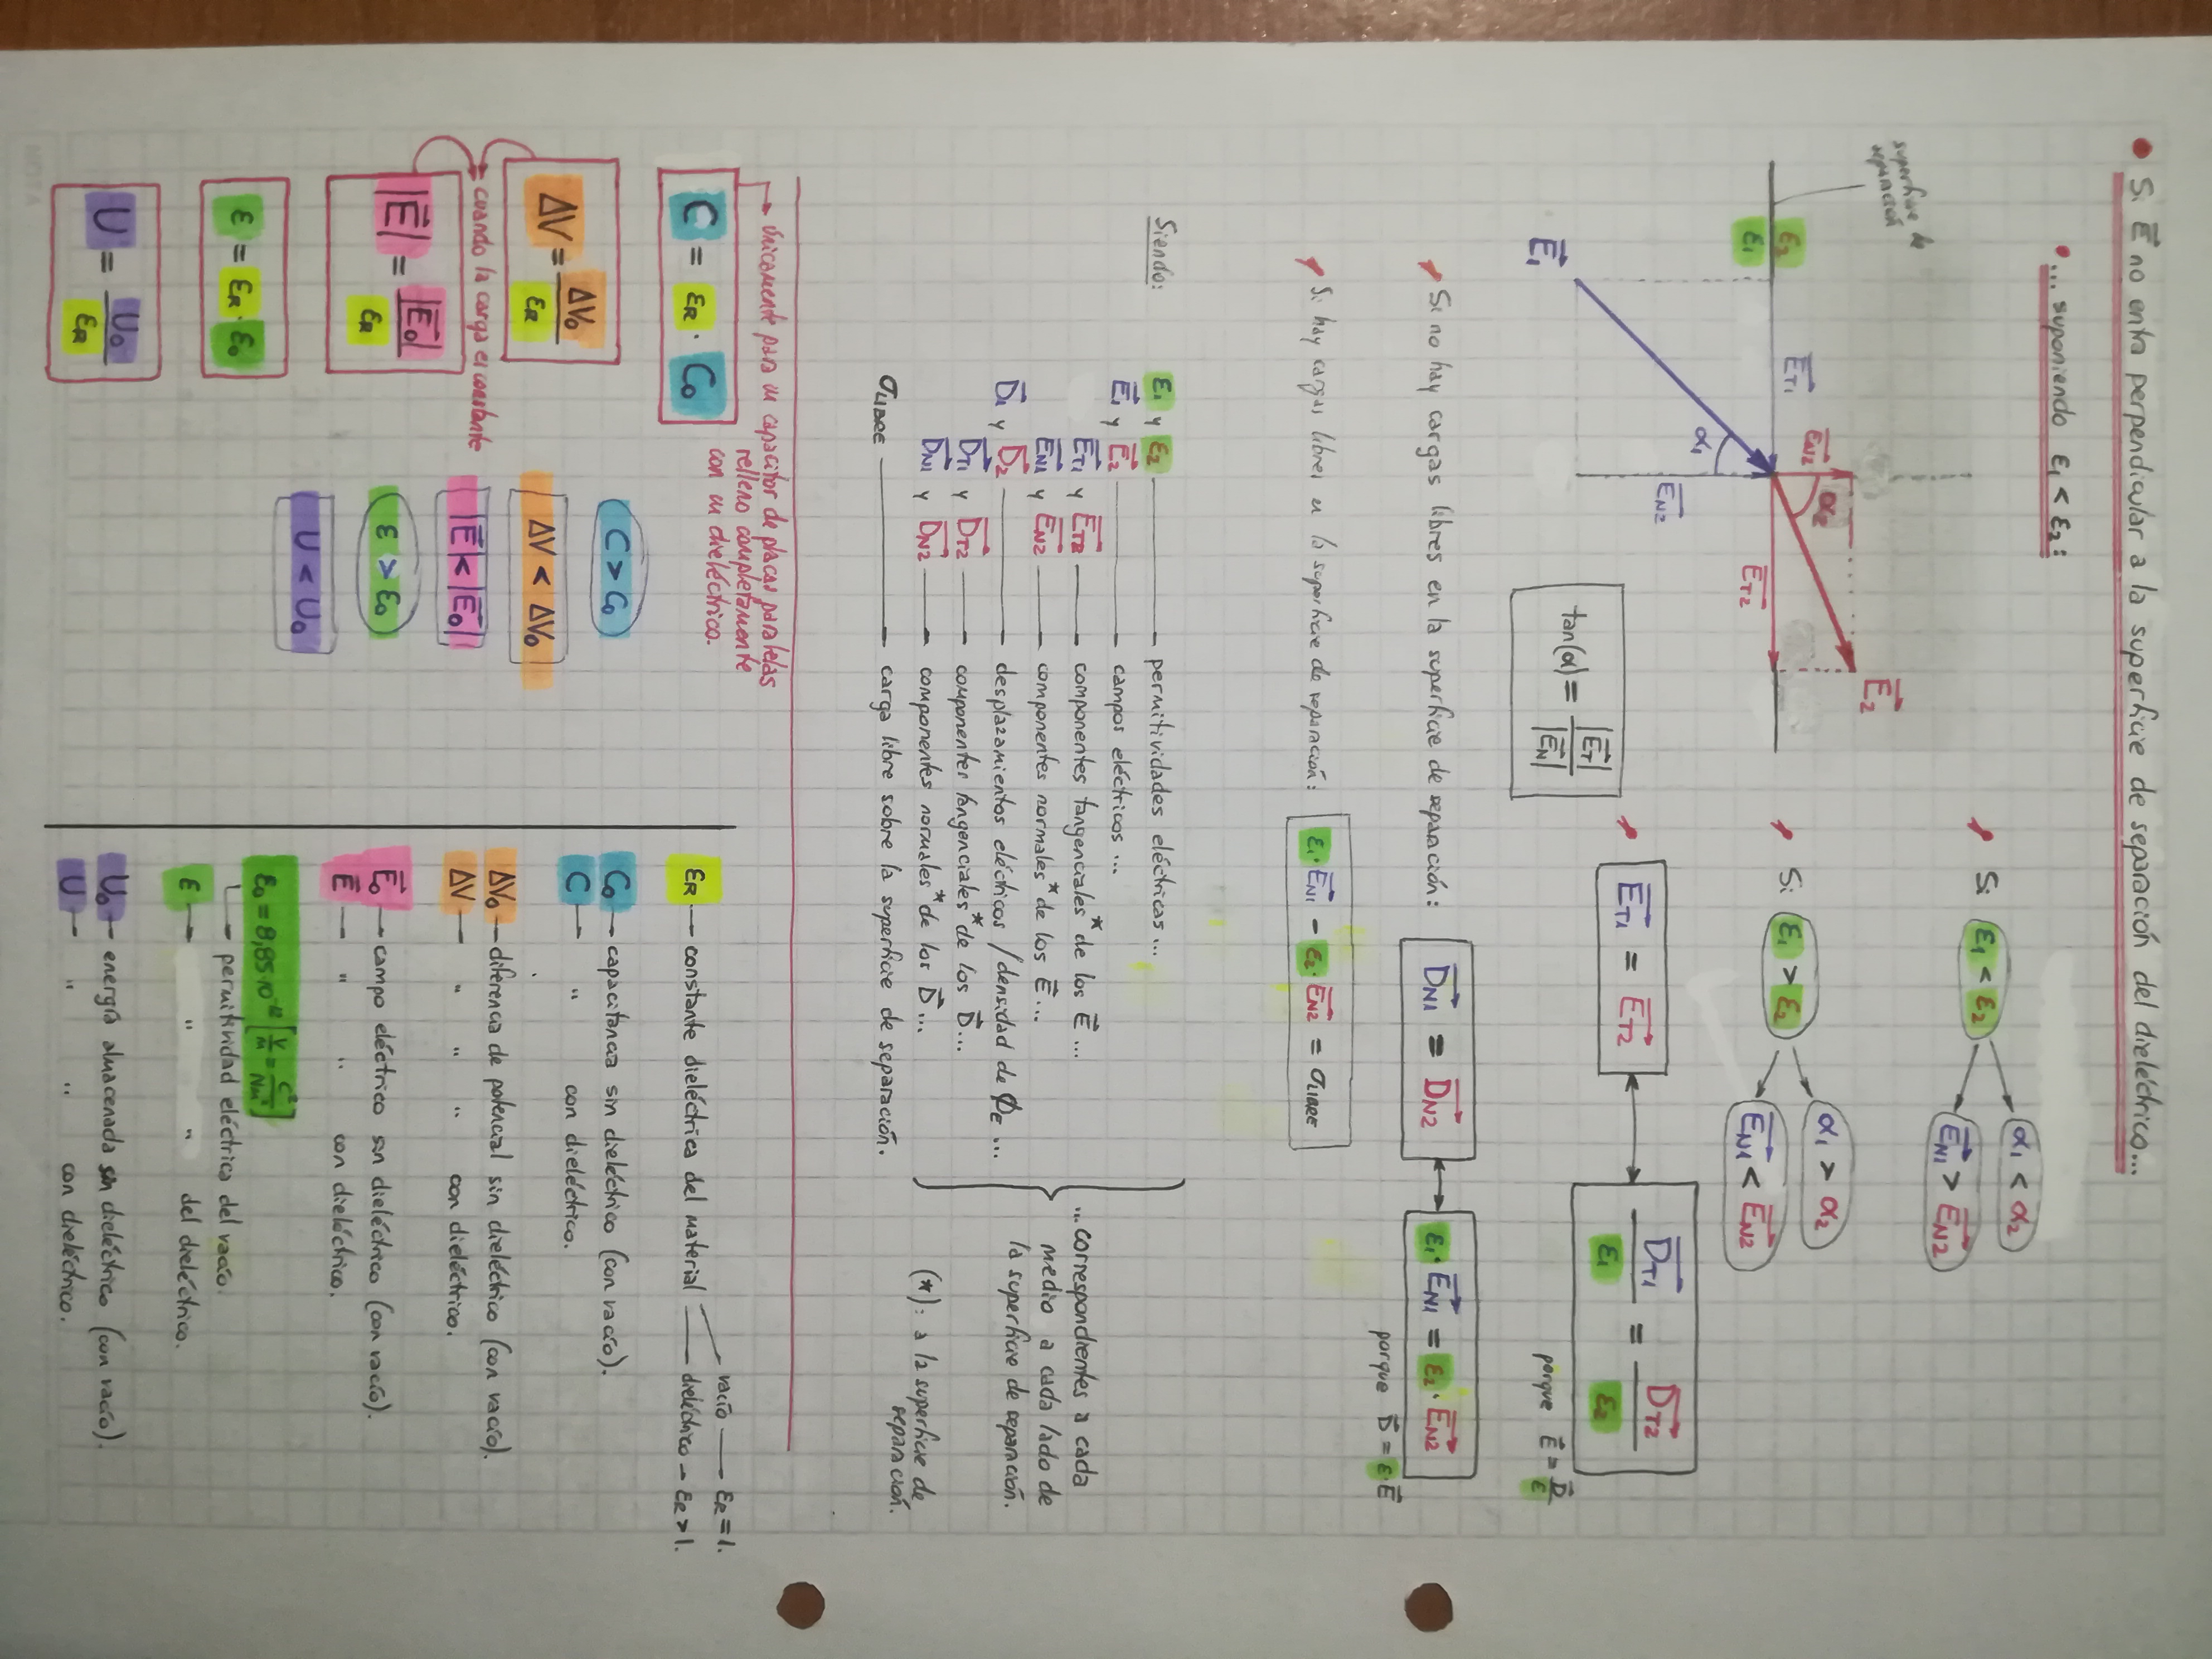 Si E⃗ no entra perpendicular a la superficie de separación del dieléctrico...
... suponiendo ε₁ < ε₂:
superficie de
separación
ε₂
ε₁
E⃗T1
E⃗N2
α₂
E⃗₂
E⃗T2
α₁
E⃗N2
E⃗₁
tan(α) = |E⃗T| / |E⃗N|
Si ε₁ < ε₂
α₁ < α₂
E⃗N1 > E⃗N2
Si ε₁ > ε₂
α₁ > α₂
E⃗N1 < E⃗N2
E⃗T1 = E⃗T2 ↔ D⃗T1 / ε₁ = D⃗T2 / ε₂
porque E⃗ = D⃗ / ε
Si no hay cargas libres en la superficie de separación: D⃗N1 = D⃗N2 ↔ ε₁ · E⃗N1 = ε₂ · E⃗N2
porque D⃗ = ε · E⃗
Si hay cargas libres en la superficie de separación: ε₁ · E⃗N1 − ε₂ · E⃗N2 = σLIBRE
Siendo: ε₁ y ε₂ — permitividades eléctricas ...
E⃗₁ y E⃗₂ — campos eléctricos ...
E⃗T1 y E⃗T2 — componentes tangenciales* de los E⃗ ...
E⃗N1 y E⃗N2 — componentes normales* de los E⃗ ...
D⃗₁ y D⃗₂ — desplazamientos eléctricos / densidad de ΦE ...
D⃗T1 y D⃗T2 — componentes tangenciales* de los D⃗ ...
D⃗N1 y D⃗N2 — componentes normales* de los D⃗ ...
σLIBRE — carga libre sobre la superficie de separación.
... correspondientes a cada
medio a cada lado de
la superficie de separación.
(*): a la superficie de
separación.
únicamente para un capacitor de placas paralelas
relleno completamente
con un dieléctrico.
C = εR · C₀
ΔV = ΔV₀ / εR
cuando la carga es constante
|E⃗| = |E⃗₀| / εR
ε = εR · ε₀
U = U₀ / εR
C > C₀
ΔV < ΔV₀
|E⃗| < |E⃗₀|
ε > ε₀
U < U₀
εR — constante dieléctrica del material
vacío — εR = 1.
dieléctrico — εR > 1.
C₀ — capacitancia sin dieléctrico (con vacío).
C — " con dieléctrico.
ΔV₀ — diferencia de potencial sin dieléctrico (con vacío).
ΔV — " " " con dieléctrico.
E⃗₀ — campo eléctrico sin dieléctrico (con vacío).
E⃗ — " " con dieléctrico.
ε₀ = 8,85·10⁻¹² [V/m = C²/Nm²]
permitividad eléctrica del vacío.
ε — " " del dieléctrico.
U₀ — energía almacenada sin dieléctrico (con vacío).
U — " " con dieléctrico.